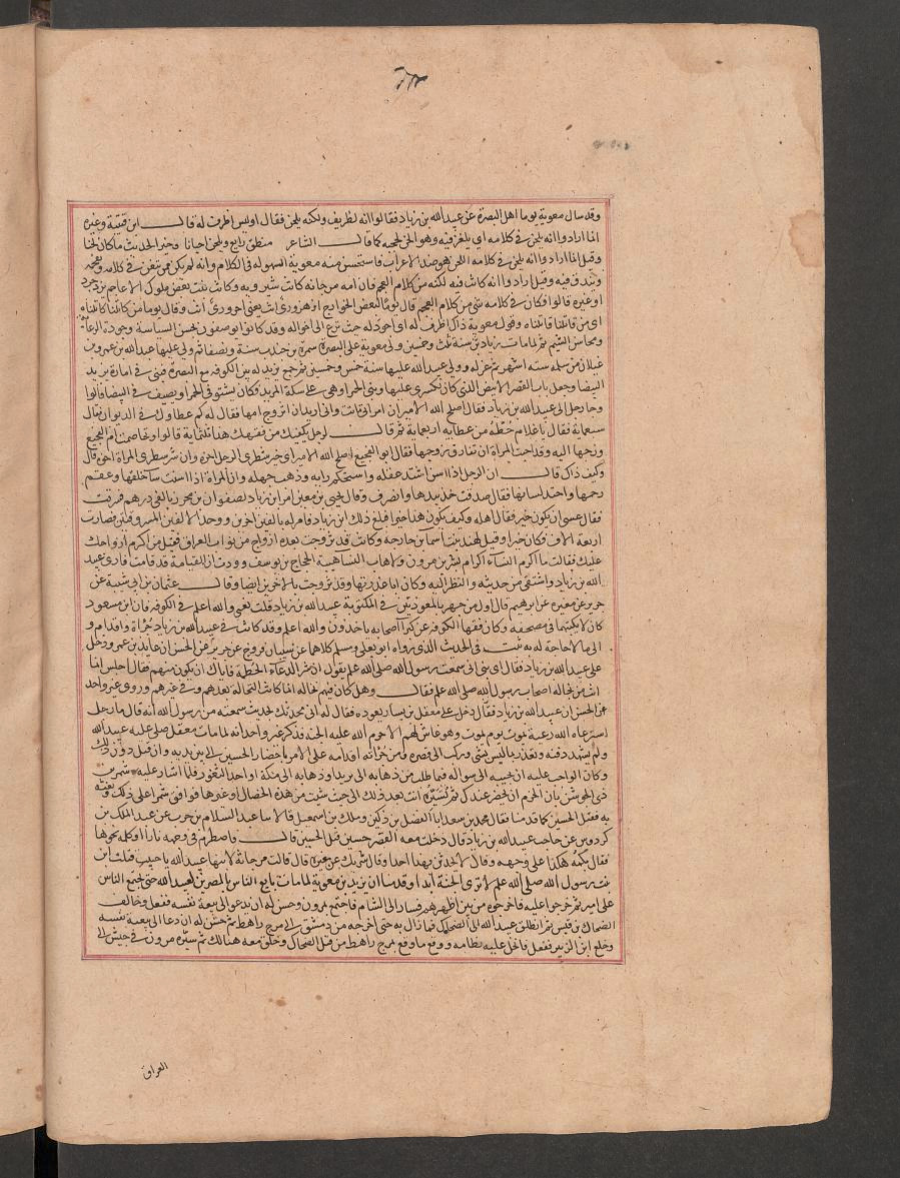 وقد سال معوية يوما اهل البصرة عن عبيد الله بن زياد فقالوا انه لظريف ولكنه يلحن فقال اوليس اظرف له قال ابن قتيبة وغيره
انما ارادوا انه يلحن في كلامه اي يلغز فيه وهو الحن لحجمه كما قال الشاعر منطق رايع ويلحن احيانا وخير الحديث ما كان لحنا
وقيل انما ارادوا انه يلحن في كلامه اللحن هو ضد الاعراب فاستحسن منه معوية السهوله في الكلام وانه لم يكن ممن يتعمق في كلامه
فيه وقيل ارادوا انه كانت فيه لكنه من كلام العجم فان امه مرجانه كانت شيرويه وكانت بنت بعض ملوك الاعاجم يزدجرد
او غيره قالوا فكان في كلامه شي من كلام العجم قال يوما لبعض الخوارج اهروري انت يعني احروري انت وقال يوما من كاتلنا كاتلناه
اي من قاتلنا قاتلناه وقول معوية ذاك اظرف له اي اجود له حيث نزع الى اخواله وقد كانوا يوصفون بحسن السياسة وجودة الرعاية
ومحاسن الشيم ثم لما مات زياد سنة ثلث وخمسين ولى معوية على البصرة سمرة بن جندب سنة ونصفا ثم ولى عليها عبد الله بن عمرو بن
غيلان بن سلمه ستة اشهر ثم عزله وولى عبيد الله عليها سنة خمس وخمسين ثم جمع يزيد له بين الكوفه مع البصرة فبنى في امارة يزيد
البيضا وجعل باب القصر الابيض الذي كان لكسرى عليها وبنى الحمرا وهي على سكة المربد فكان يشتو في الحمرا ويصيف في البيضا قالوا
وجا رجل الى عبيد الله بن زياد فقال اصلح الله الامير ان امراتي ماتت واني اريد ان اتزوج امها فقال له كم عطاوك في الديوان فقال
سبعماية فقال يا غلام حطه من عطايه اربعماية ثم قال لرجل يكفيك من فقهك هذا ثلثماية قالوا وتخاصمت ام الفجيع
وزوجها اليه وقد احبت المراة ان تفارق زوجها فقال ابو الفجيع اصلح الله الامير ان خير شطري الرجل اخره وان شر شطري المراة اخره قال
وكيف ذاك قال ان الرجل اذا اسن اشتد عقله واستحكم رايه وذهب جهله وان المراة اذا اسنت سا خلقها وعقم
رحمها واحتد لسانها فقال صدقت خذ بيدها وانصرف وقال يحيى بن معين امر ابن زياد لصفوان بن محرز بالفي درهم فسرقت
فقال عسى ان يكون خير فقال اهله وكيف يكون هذا خيرا فبلغ ذلك ابن زياد فامر له بالفين اخرين ووجد الالفين فصارت
اربعة الاف فكان خيرا وقيل لهند بنت اسما بن خارجة وكانت قد تزوجت بعده ازواج من نواب العراق فقيل من اكرم ازواجك
عليك فقالت ما اكرم النساء اكرام بشر بن مرون ولا هاب النسا هيبة الحجاج بن يوسف ووددت ان القيامة قد قامت فارى عبيد
الله بن زياد واشتفي من حديثه والنظر اليه وكان ابا عذرتها وقد تزوجت بالاخرين ايضا وقال عثمان بن ابي شيبة عن
جرير عن مغيره عن ابرهيم قال اول من جهر بالمعوذتين في المكتوبة عبيد الله بن زياد قلت يعني والله اعلم في الكوفه فان ابن مسعود
كان لا يكتبهما في مصحفه وكان فقها الكوفه عن كبرا اصحابه ياخذون والله اعلم وقد كانت في عبيد الله بن زياد جراة واقدام و
الى ما لا حاجة له به ثبت في الحديث الذي رواه ابو يعلى ومسلم كلاهما عن شيبان بن فروخ عن جرير عن الحسن ان عايذ بن عمرو دخل
على عبيد الله بن زياد فقال اي بني اني سمعت رسول الله صلى الله علم يقول ان شر الرعاة الحطمة فاياك ان يكون منهم فقال اجلس انما
انت من نخاله اصحاب رسول الله صلى الله علم فقال وهل كان فيهم نخاله انما كانت النخالة بعدهم وفي غيرهم وروى غير واحد
عن الحسن ان عبيد الله بن زياد فقال دخل على معقل بن يسار يعوده فقال له اني محدثك بحديث سمعته من رسول الله انه قال ما رجل
استرعاه الله رعية يموت يوم يموت وهو غاش لهم الا حرم الله عليه الجنة فذكر غير واحد انه لما مات معقل صلى عليه عبيد الله
ولم يشهد دفنه واعتذر بما ليس بشي وركب الى قصره ومن جراته اقدامه على الامر باحضار الحسين الى بين يديه وان قتل دون ذلك
وكان الواجب عليه ان يجيبه الى سواله فيما طلب من ذهابه الى يزيد او ذهابه الى مكة او احد الثغور فلما اشار عليه شمر بن
ذي الجوشن بان الحزم ان يحضر عندك ثم تسيره انت بعد ذلك الى حيث شيت من هذه الخصال او غيرها فوافق شمرا على ذلك
به فقتل الحسين كما قدمنا فقال محمد بن سعد ابنا الفضل بن دكين وملك بن اسمعيل قالا سا عبد السلام بن حرب عن عبد الملك بن
كردوس عن حاجب عبيد الله بن زياد قال دخلت معه القصر حين قتل الحسين قال فاضطرم في وجهه نارا او كلمه نحوها
فقال بكمه هكذا على وجهه وقال لا تحدثن بهذا احدا وقال شريك عن مغيرة قال قالت مرجانة لابنها عبيد الله يا خبيث قتلت ابن
بنت رسول الله صلى الله علم لا ترى الجنة ابدا وقدمنا ان يزيد بن معوية لما مات بايع الناس بالمصرين لعبيد الله حتى يجتمع الناس
على امير ثم خرجوا عليه فاخرجوه من بين اظهرهم فسار الى الشام فاجتمع بمرون وحسن له ان يدعو الى بيعة نفسه ففعل وخالف
الضحاك بن قيس ثم انطلق عبيد الله الى الضحاك فما زال به حتى اخرجه من دمشق الى مرج راهط ثم حسن له ان دعا الى بيعة نفسه
وخلع ابن الزبير ففعل فانحل عليه نظامه ووقع ما وقع بمرج راهط من قتل الضحاك وخلق معه هنالك ثم سيره مرون في جيش الى
العراق